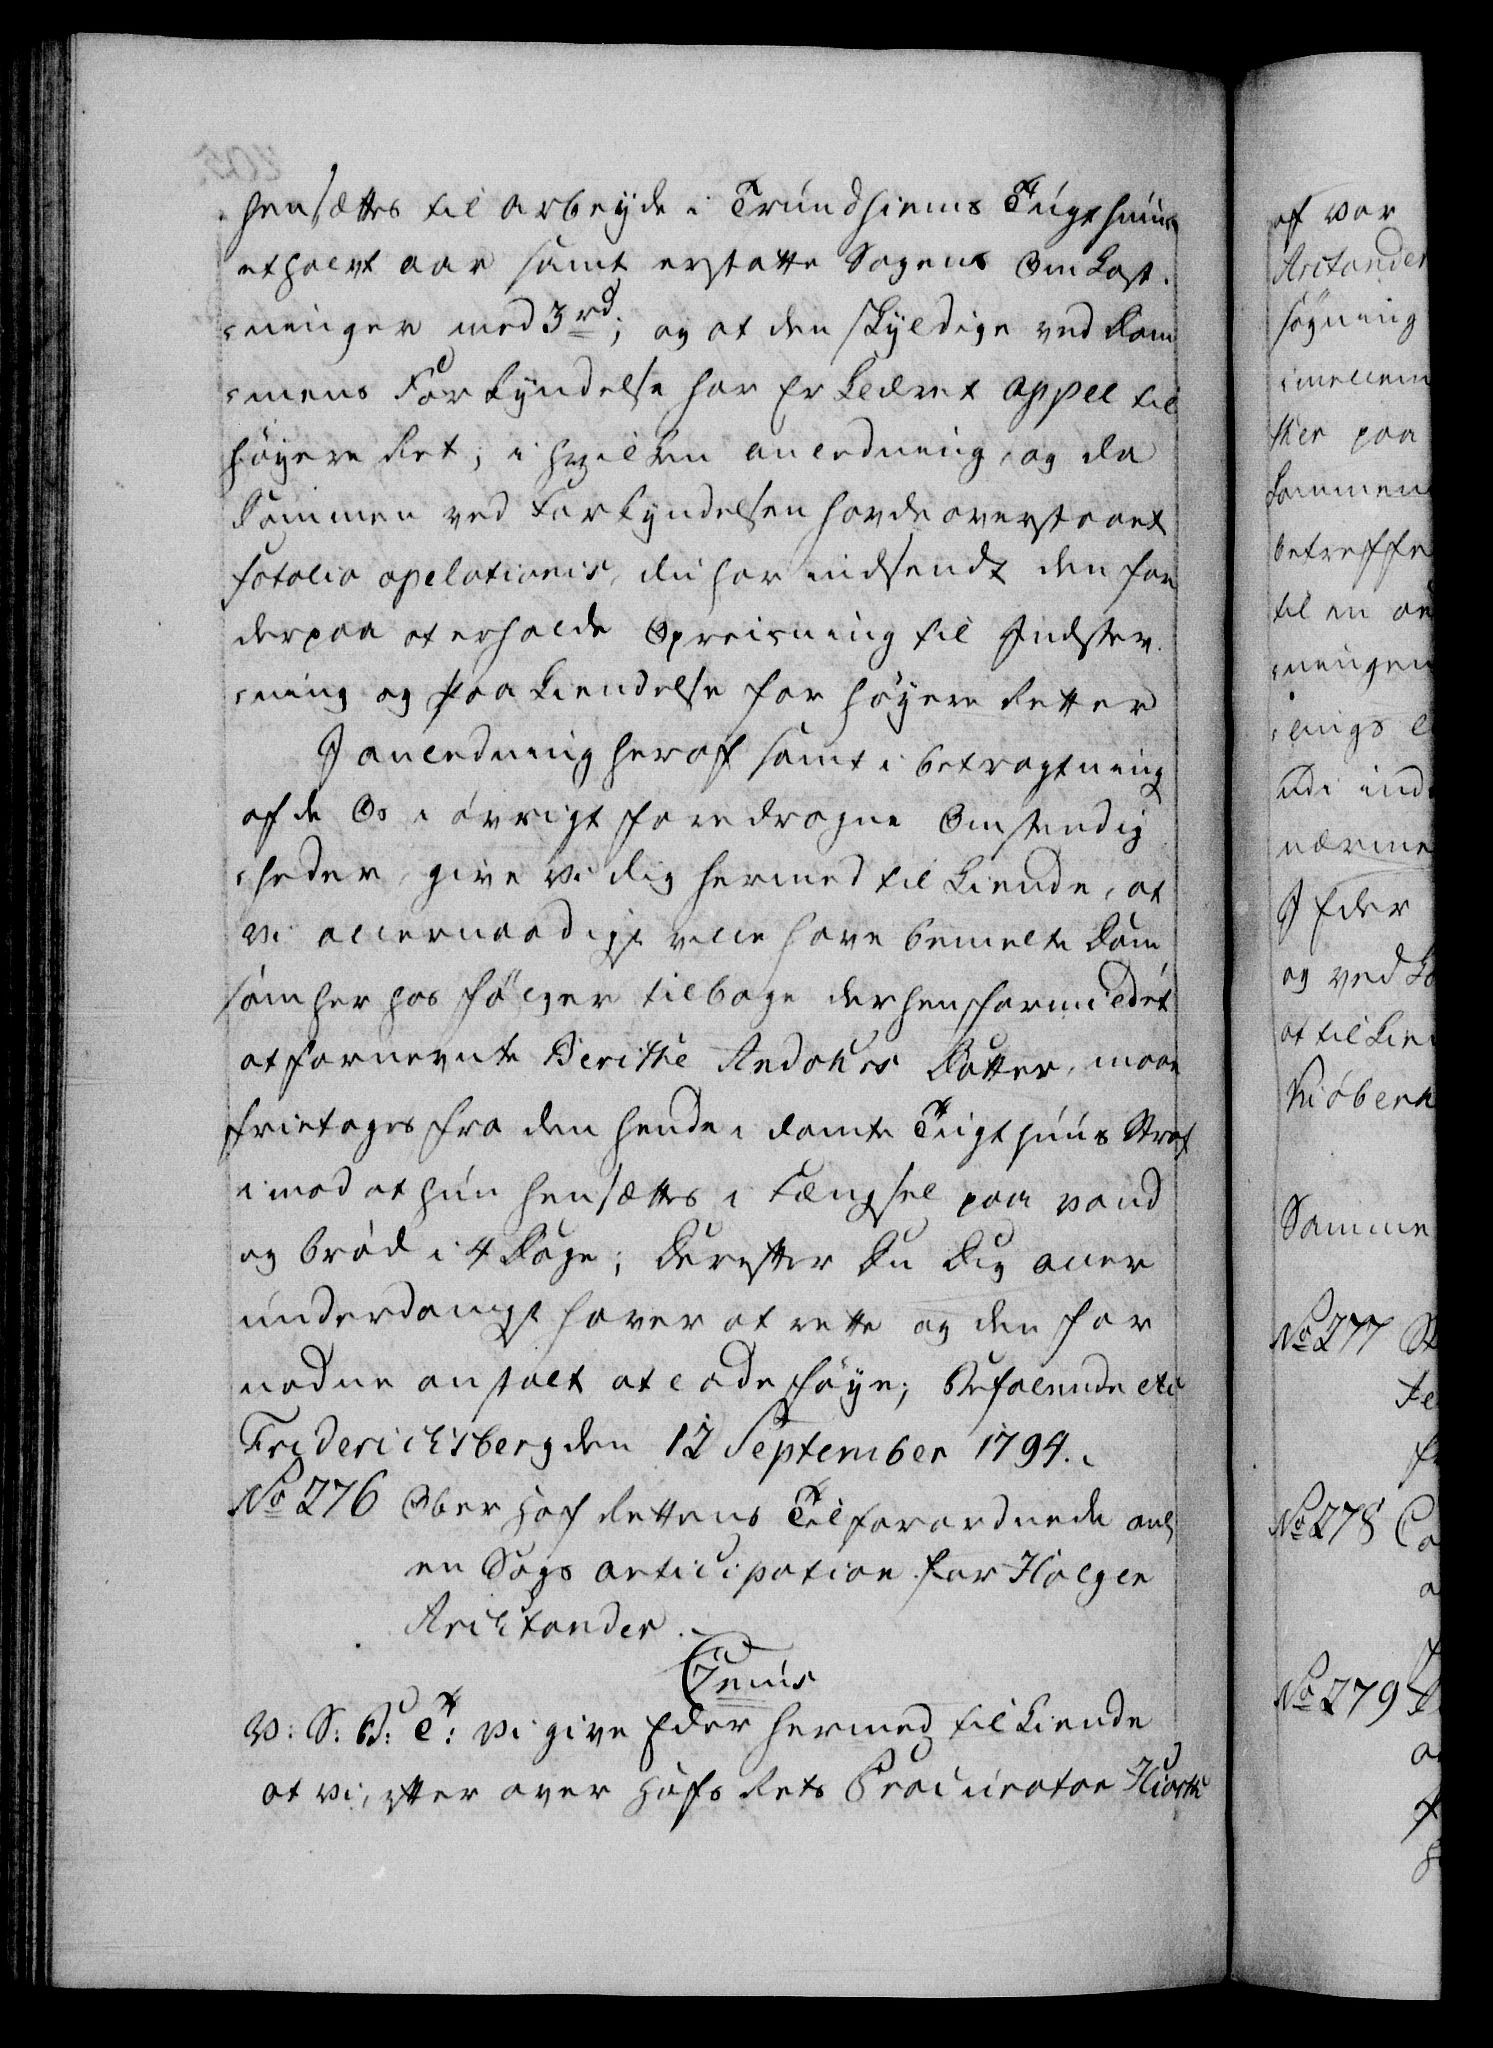 hensættes til arbeyde i Trundhiems Tugthuus
et halvt aar samt erstatte Sagens Omkost-
-ninger med 3 rd; og at den skyldige ved Dom-
-mens Forkyndelse har Erklæret Appel til
høyere Ret; i hvilken anledning, og da
Dommen ved Forkyndelsen havde overstaaet
fatalia apelationis, du har indsendt den for
derpaa at erholde Opreisning til Indstev-
-ning og Paakiendelse for høyere Retter
I anledning heraf samt i betragtning
af de Os i øvrigt foredragne Omstendig-
-heder, give vi dig hermed tilkiende, at
vi allernaadigst ville have bemelte Dom,
som her hos følger tilbage derhen formildet
at fornevnte Berithe Andohrs Datter, maae
frietages fra den hende i domte Tugthuus Straf
imod at hun hensættes i Fængsel paa vand
og brød i 4 Dage; Derefter Du Dig aller
underdanigst haver at rette og den for
nødne anstalt at lade føye; Befalende etc
Friderichsberg den 12 September 1794.
No 276 Over Hof Rettens Tilforordnede anl
en Sags anticipation for Holger
Archtander.
Genus
V: S: G: T: Vi give Eder hermed tilkiende
at vi, efter over Hofs Rets Procurator Hiorth
af vor
Arctander
søgning
imellem
sker paa
kommen
betreffe
til en
-ningen
-lings
udi ind
nærme
I Eder
og ved
at tilkien
Kiøbenh
Samme
No 277
No 278
No 279